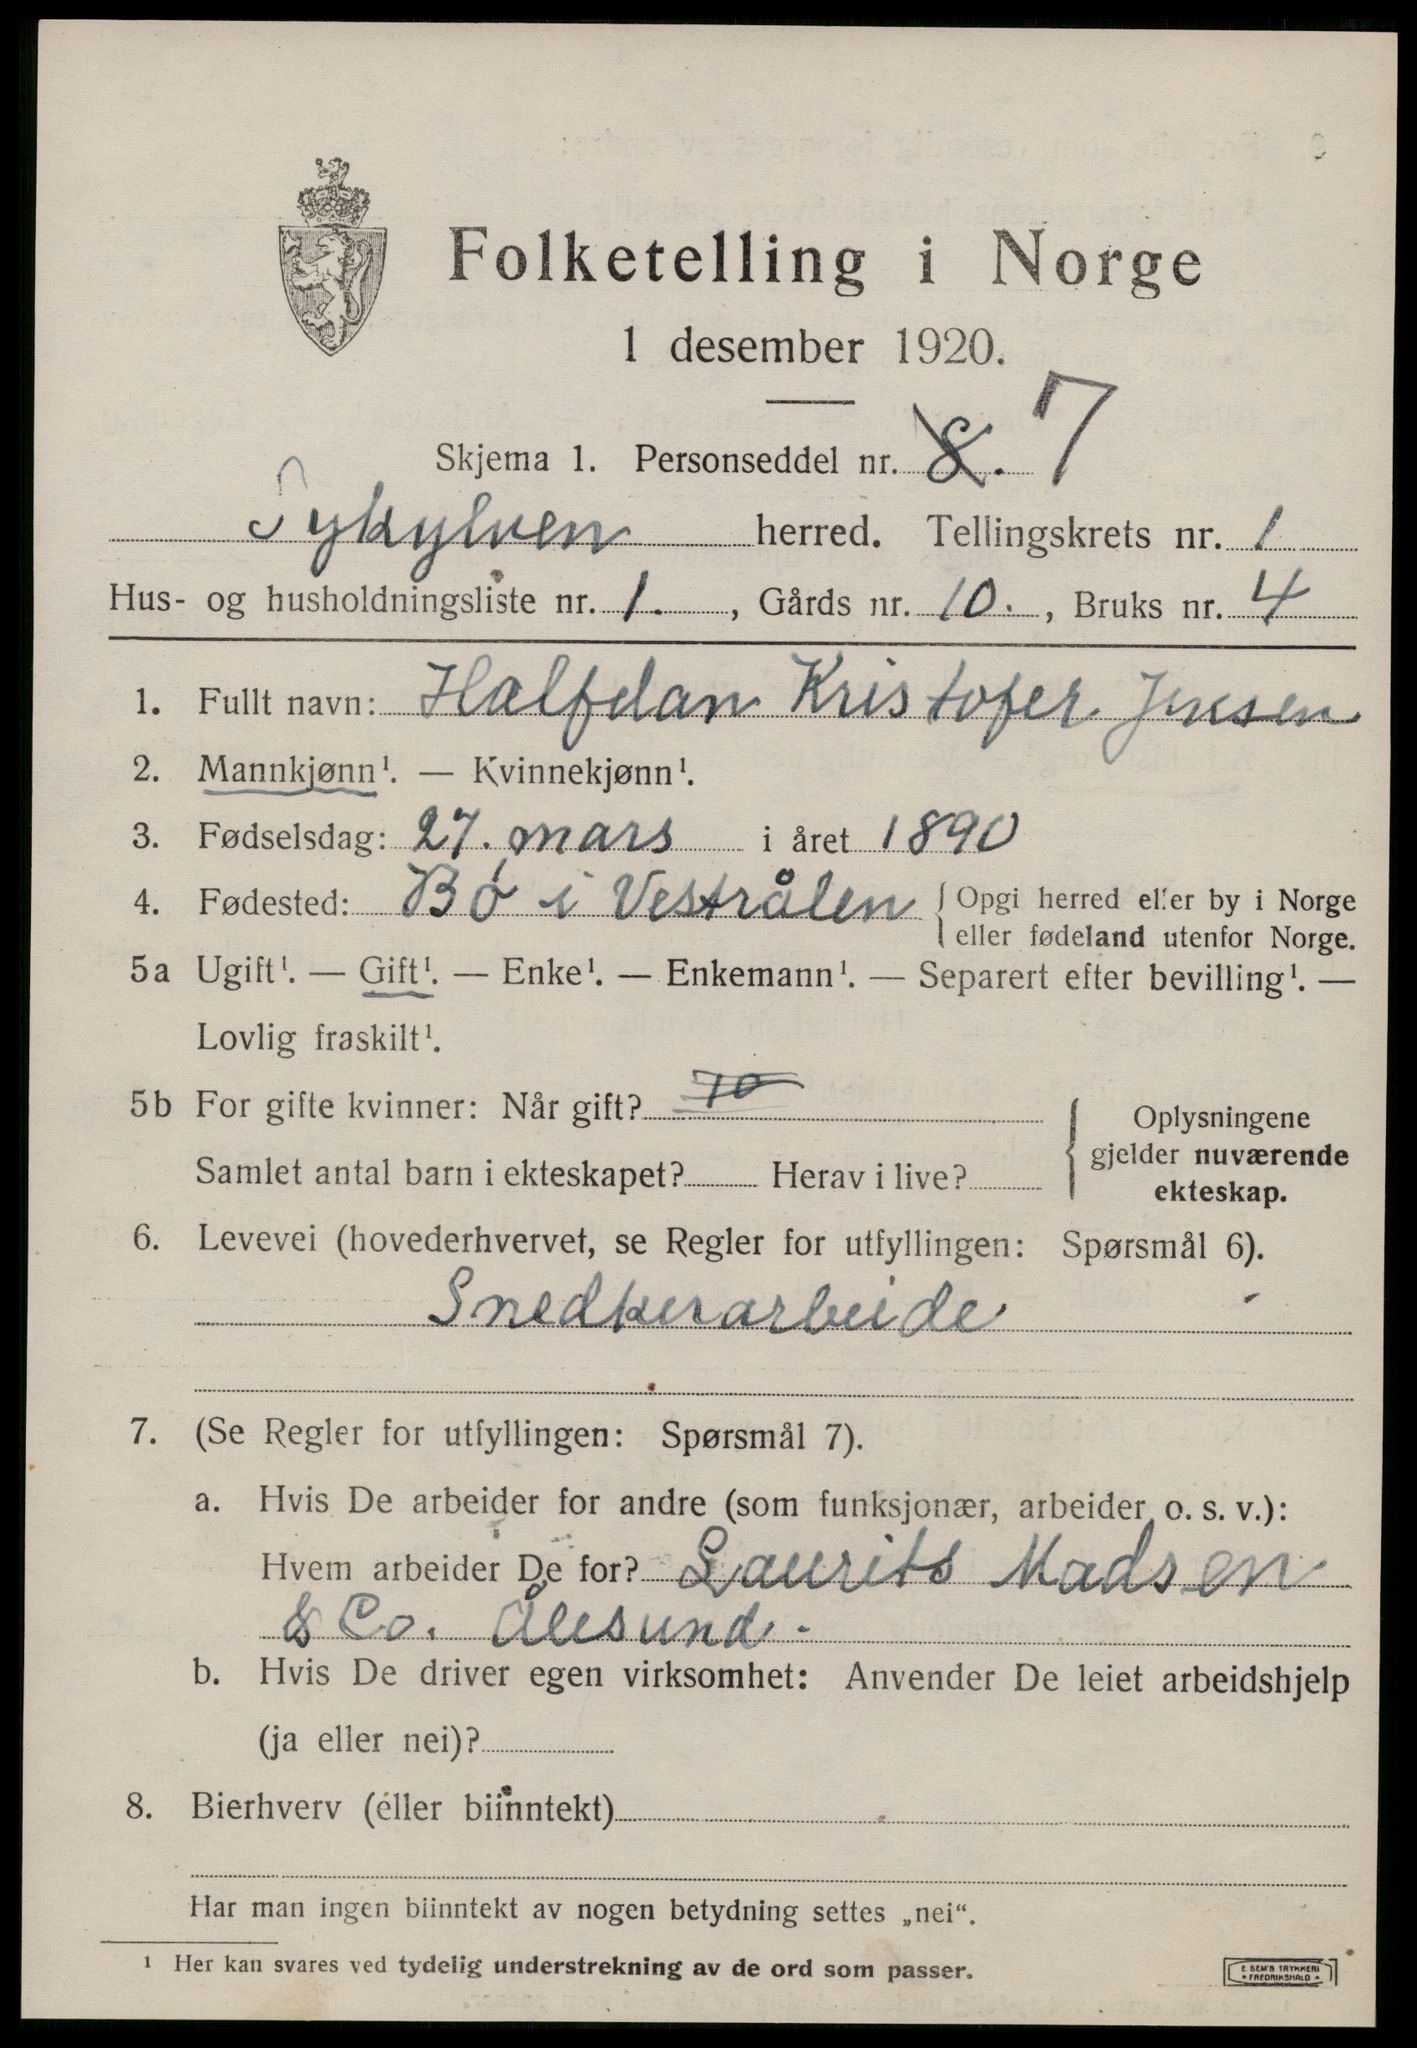 Folketelling i Norge
1 desember 1920.
Skjema 1. Personseddel nr. 8. 7
Sykylven herred. Tellingskrets nr. 1
Hus- og husholdningsliste nr. 1. , Gårds nr. 10. , Bruks nr. 4
1. Fullt navn: Halfdan Kristofer Jensen
2. Mannkjønn¹. — Kvinnekjønn¹.
3. Fødselsdag: 27. mars i året 1890
4. Fødested: Bø i Vestrålen { Opgi herred eller by i Norge
eller fødeland utenfor Norge.
5a Ugift¹. — Gift¹. — Enke¹. — Enkemann¹. — Separert efter bevilling¹. —
Lovlig fraskilt¹.
5b For gifte kvinner: Når gift? 70
Samlet antal barn i ekteskapet? Herav i live?
Oplysningene
gjelder nuværende
ekteskap.
6. Levevei (hovederhvervet, se Regler for utfyllingen: Spørsmål 6).
Snedkerarbeide
7. (Se Regler for utfyllingen: Spørsmål 7).
a. Hvis De arbeider for andre (som funksjonær, arbeider o. s. v.):
Hvem arbeider De for? Laurits Madsen
& Co. Ålesund.
b. Hvis De driver egen virksomhet: Anvender De leiet arbeidshjelp
(ja eller nei)?
8. Bierhverv (eller biinntekt)
Har man ingen biinntekt av nogen betydning settes „nei“.
¹ Her kan svares ved tydelig understrekning av de ord som passer.
E. SEM'S TRYKKERI
• FREDRIKSHALD •